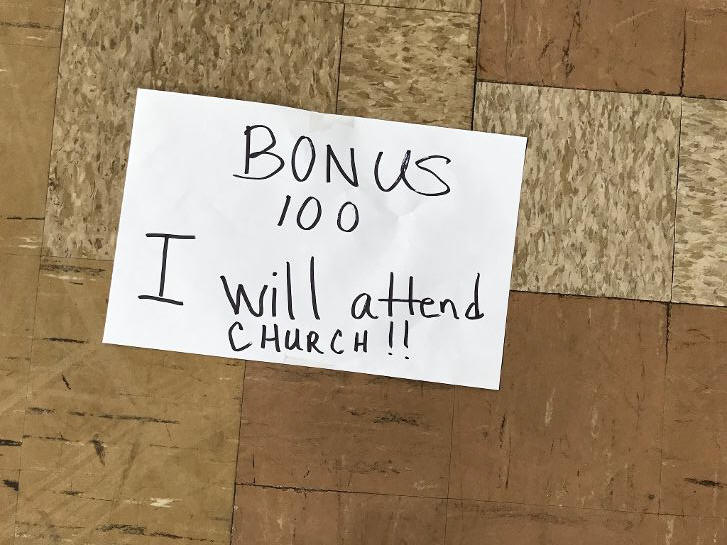 BONUS
100
I will attend
CHURCH!!